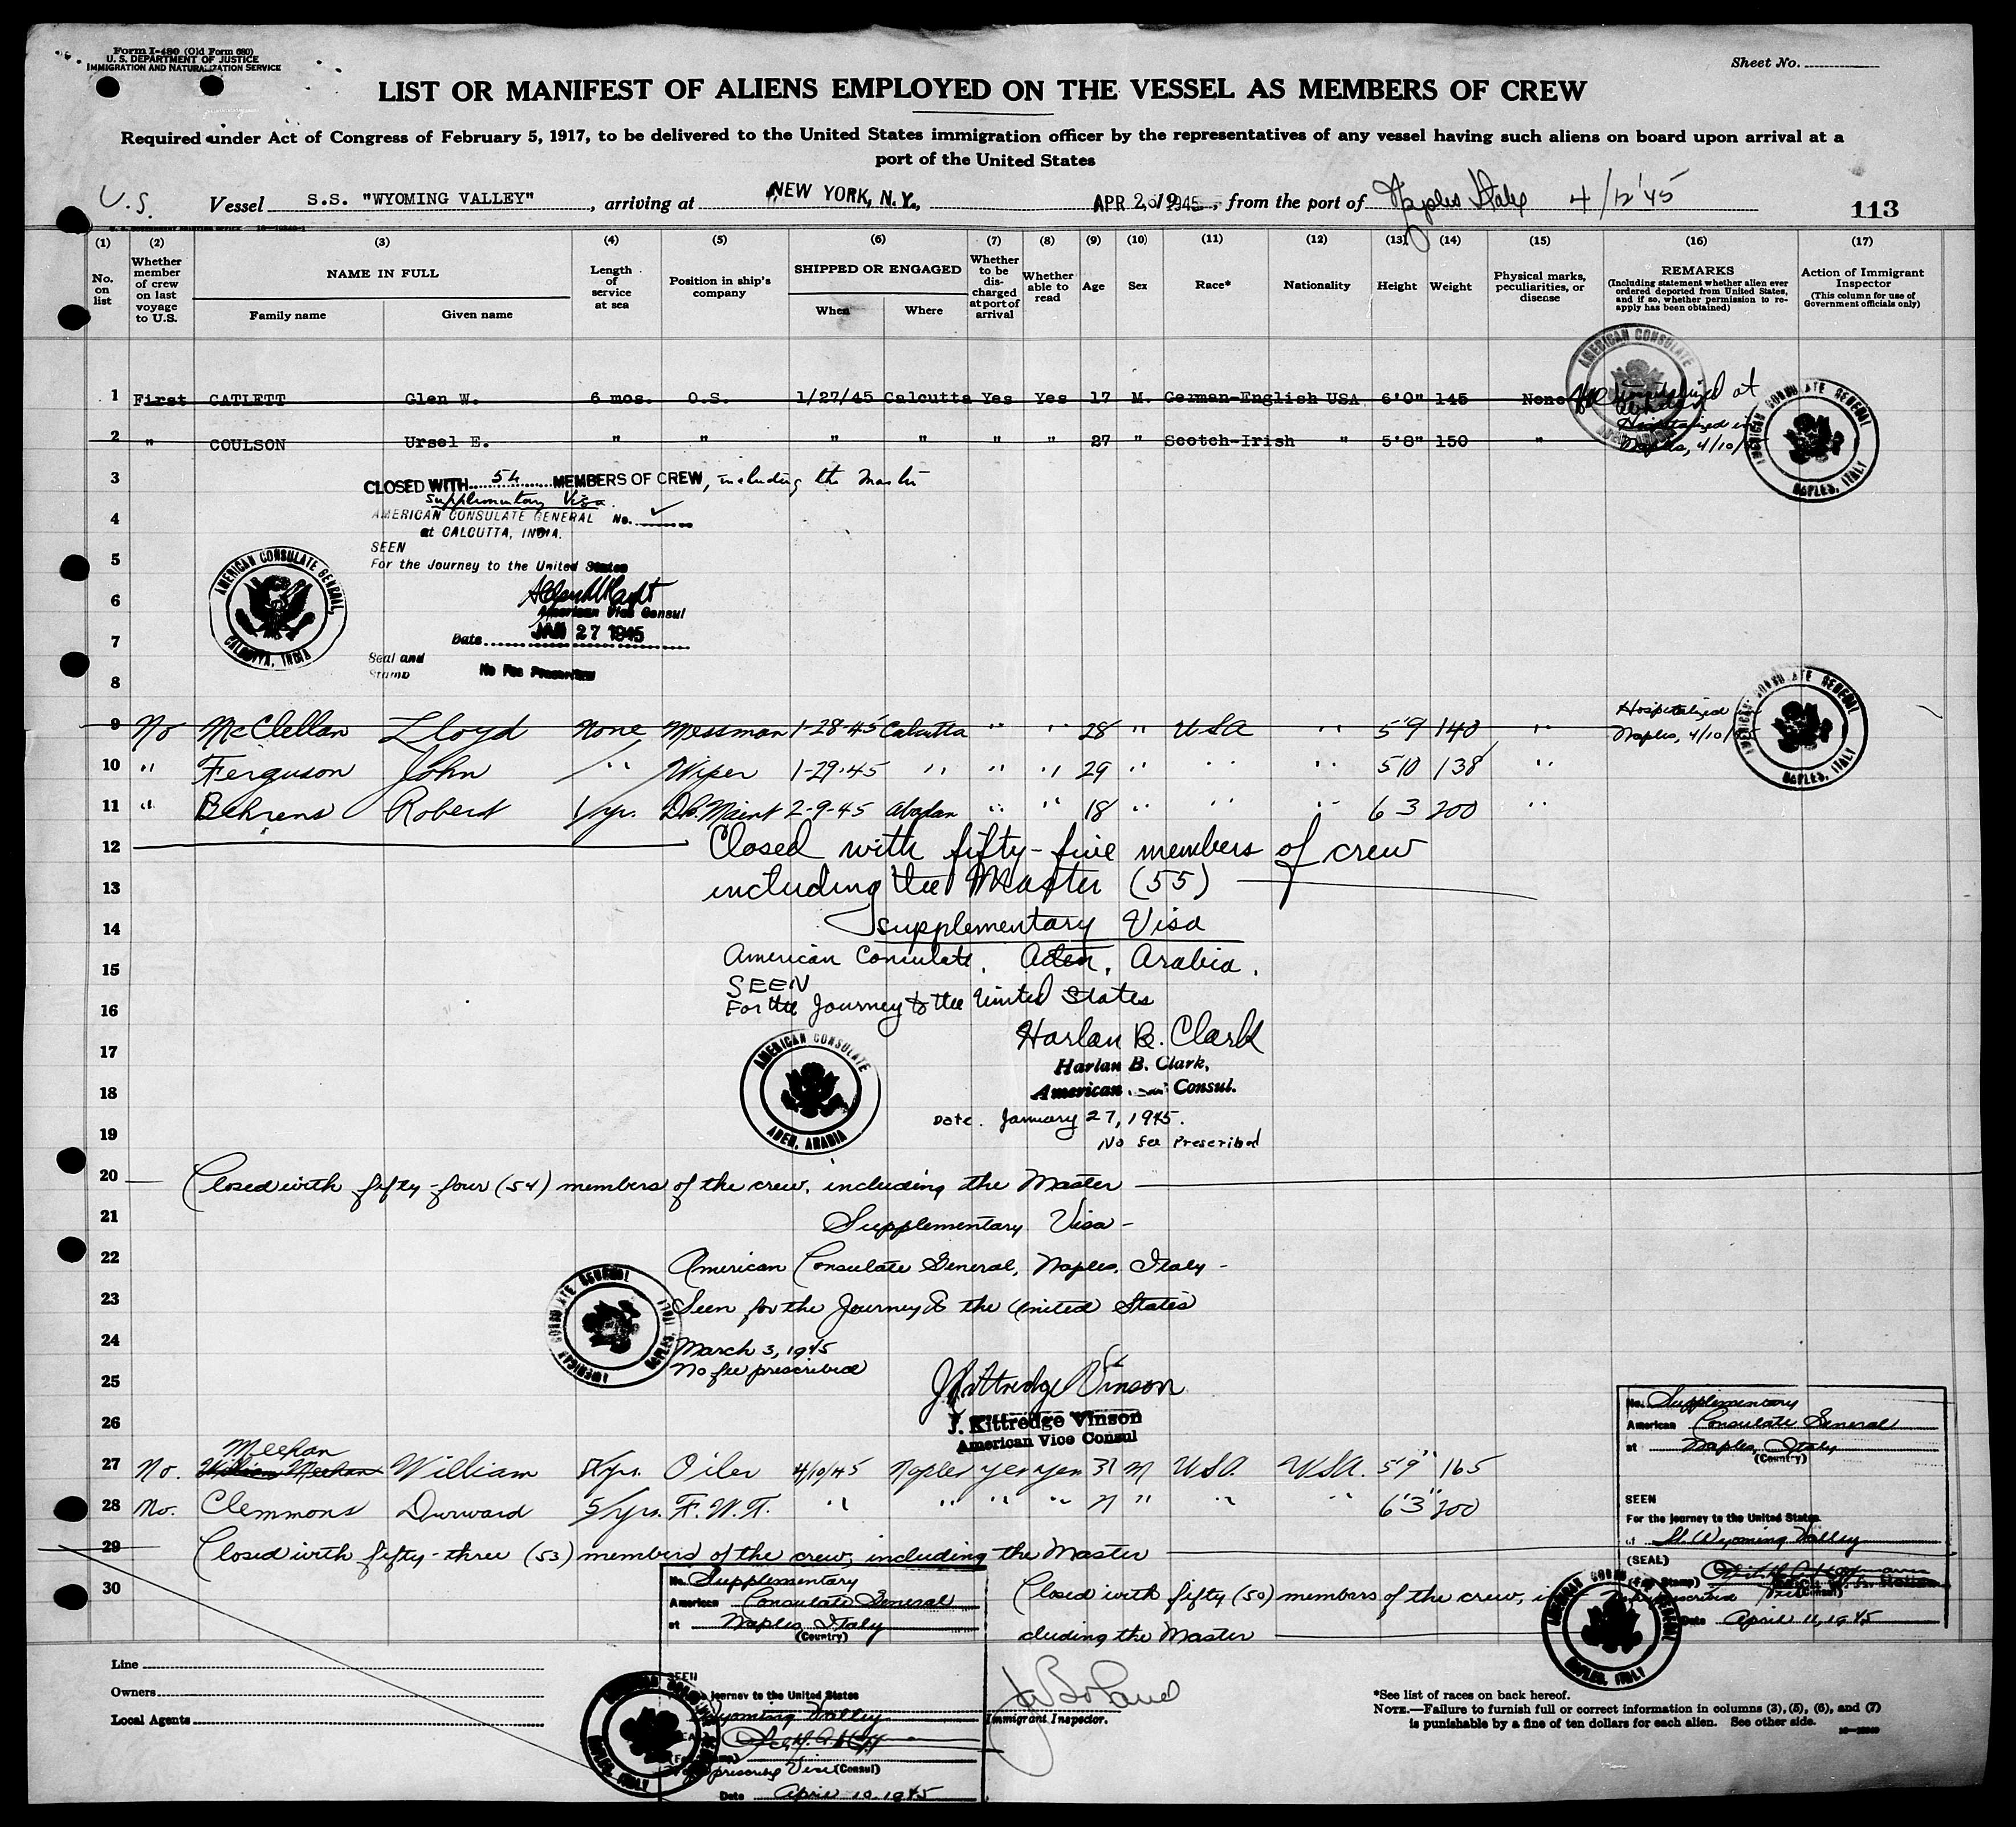 Form I-480 (Old Form 680)
U. S. DEPARTMENT OF JUSTICE
IMMIGRATION AND NATURALIZATION SERVICE
Sheet No.
LIST OR MANIFEST OF ALIENS EMPLOYED ON THE VESSEL AS MEMBERS OF CREW
Required under Act of Congress of February 5, 1917, to be delivered to the United States immigration officer by the representatives of any vessel having such aliens on board upon arrival at a
port of the United States
U.S. Vessel S.S. "WYOMING VALLEY", arriving at NEW YORK, N.Y., APR 1945, from the port of Naples Italy 4/12'45
113
(1) (2) (3) (4) (5) (6) (7) (8) (9) (10) (11) (12) (13) (14) (15) (16) (17)
No. on list
Whether member of crew on last voyage to U.S.
NAME IN FULL
Family name Given name
Length of service at sea
Position in ship's company
SHIPPED OR ENGAGED
When Where
Whether to be discharged at port of arrival
Whether able to read
Age Sex Race* Nationality Height Weight
Physical marks, peculiarities, or disease
REMARKS
(Including statement whether alien ever ordered deported from United States, and if so, whether permission to reapply has been obtained)
Action of Immigrant Inspector
(This column for use of Government officials only)
AMERICAN CONSULATE ARABIA
1 First CATLETT Glen W. 6 mos. O.S. 1/27/45 Calcutta Yes Yes 17 M. German-English USA 6'0" 145 None Hospitalized at
2 " COULSON Ursel E. " " " " " " 27 " Scotch-Irish " 5'8" 150 " Hospitalized in Naples, 4/10/45
AMERICAN CONSULATE GENERAL NAPLES, ITALY
3 CLOSED WITH 54 MEMBERS OF CREW, including the Master
Supplementary Visa
4 AMERICAN CONSULATE GENERAL No.
at CALCUTTA, INDIA.
5 SEEN
For the Journey to the United States
AMERICAN CONSULATE GENERAL, CALCUTTA, INDIA
6 American Vice Consul
7 Date JAN 27 1945
Seal and Stamp No Fee Prescribed
8
9 No McClellan Lloyd None Messman 1-28-45 Calcutta " " 28 " USA " 5'9 140 " Hospitalized Naples, 4/10/45
AMERICAN CONSULATE GENERAL NAPLES, ITALY
10 " Ferguson John " Wiper 1-29-45 " " " 29 " " " 5 10 138 "
11 " Behrens Robert 1 yr. Dk. Maint 2-9-45 Abadan " " 18 " " " 6 3 200 "
12 Closed with fifty-five members of crew
13 including the Master (55)
14 Supplementary Visa
15 American Consulate, Aden, Arabia.
SEEN
16 For the Journey to the United States
17 Harlan B. Clark
Harlan B. Clark,
18 American Consul.
AMERICAN CONSULATE ADEN, ARABIA
Date. January 27, 1945.
19 No fee Prescribed
20 Closed with fifty-four (54) members of the crew, including the Master
21 Supplementary Visa -
22 American Consulate General, Naples, Italy -
AMERICAN CONSULATE GENERAL NAPLES, ITALY
23 Seen for the Journey to the United States
24 March 3, 1945
No fee prescribed
25 J Kittredge Vinson
26 J. Kittredge Vinson
American Vice Consul
Meehan
27 No. William Meehan William yrs. Oiler 4/10/45 Naples yes yes 31 M USA. USA. 5'9" 165
28 No. Clemmons Durward 5 yrs. F.W.T. " " " " " " " 6'3" 200
29 Closed with fifty-three (53) members of the crew, including the Master
30
No. Supplementary
American Consulate General
at Naples, Italy
(Country)
SEEN
For the journey to the United States
of Wyoming Valley
(SEAL)
(Fee Stamp)
(Consul)
Date April 11, 1945
AMERICAN CONSULATE GENERAL NAPLES, ITALY
Closed with fifty (50) members of the crew, in
cluding the Master
No. Supplementary
American Consulate General
at Naples, Italy
(Country)
SEEN
journey to the United States
Wyoming Valley
(Consul)
Date April 10, 1945
AMERICAN CONSULATE GENERAL NAPLES, ITALY
Line
Owners
Local Agents
Immigrant Inspector.
*See list of races on back hereof.
NOTE.—Failure to furnish full or correct information in columns (3), (5), (6), and (7)
is punishable by a fine of ten dollars for each alien. See other side.